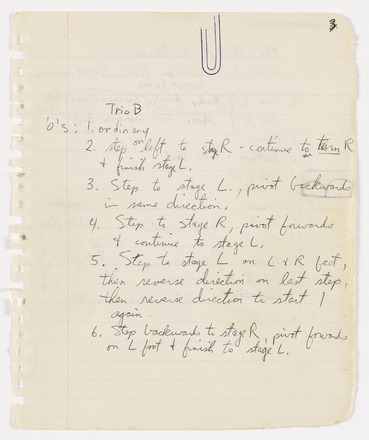 3
Trio B
'0's: 1, ordinary
2. step on left to stage R - continue to turn R
& finish stage L.
3. Step to stage L., pivot backwards
in same direction.
4. Step to stage R, pivot forwards
& continue to stage L.
5. Step to stage L on L & R feet,
then reverse direction on last step,
then reverse direction to start 1
again.
6. Step backwards to stage R, pivot fowards
on L foot & finish to stage L.